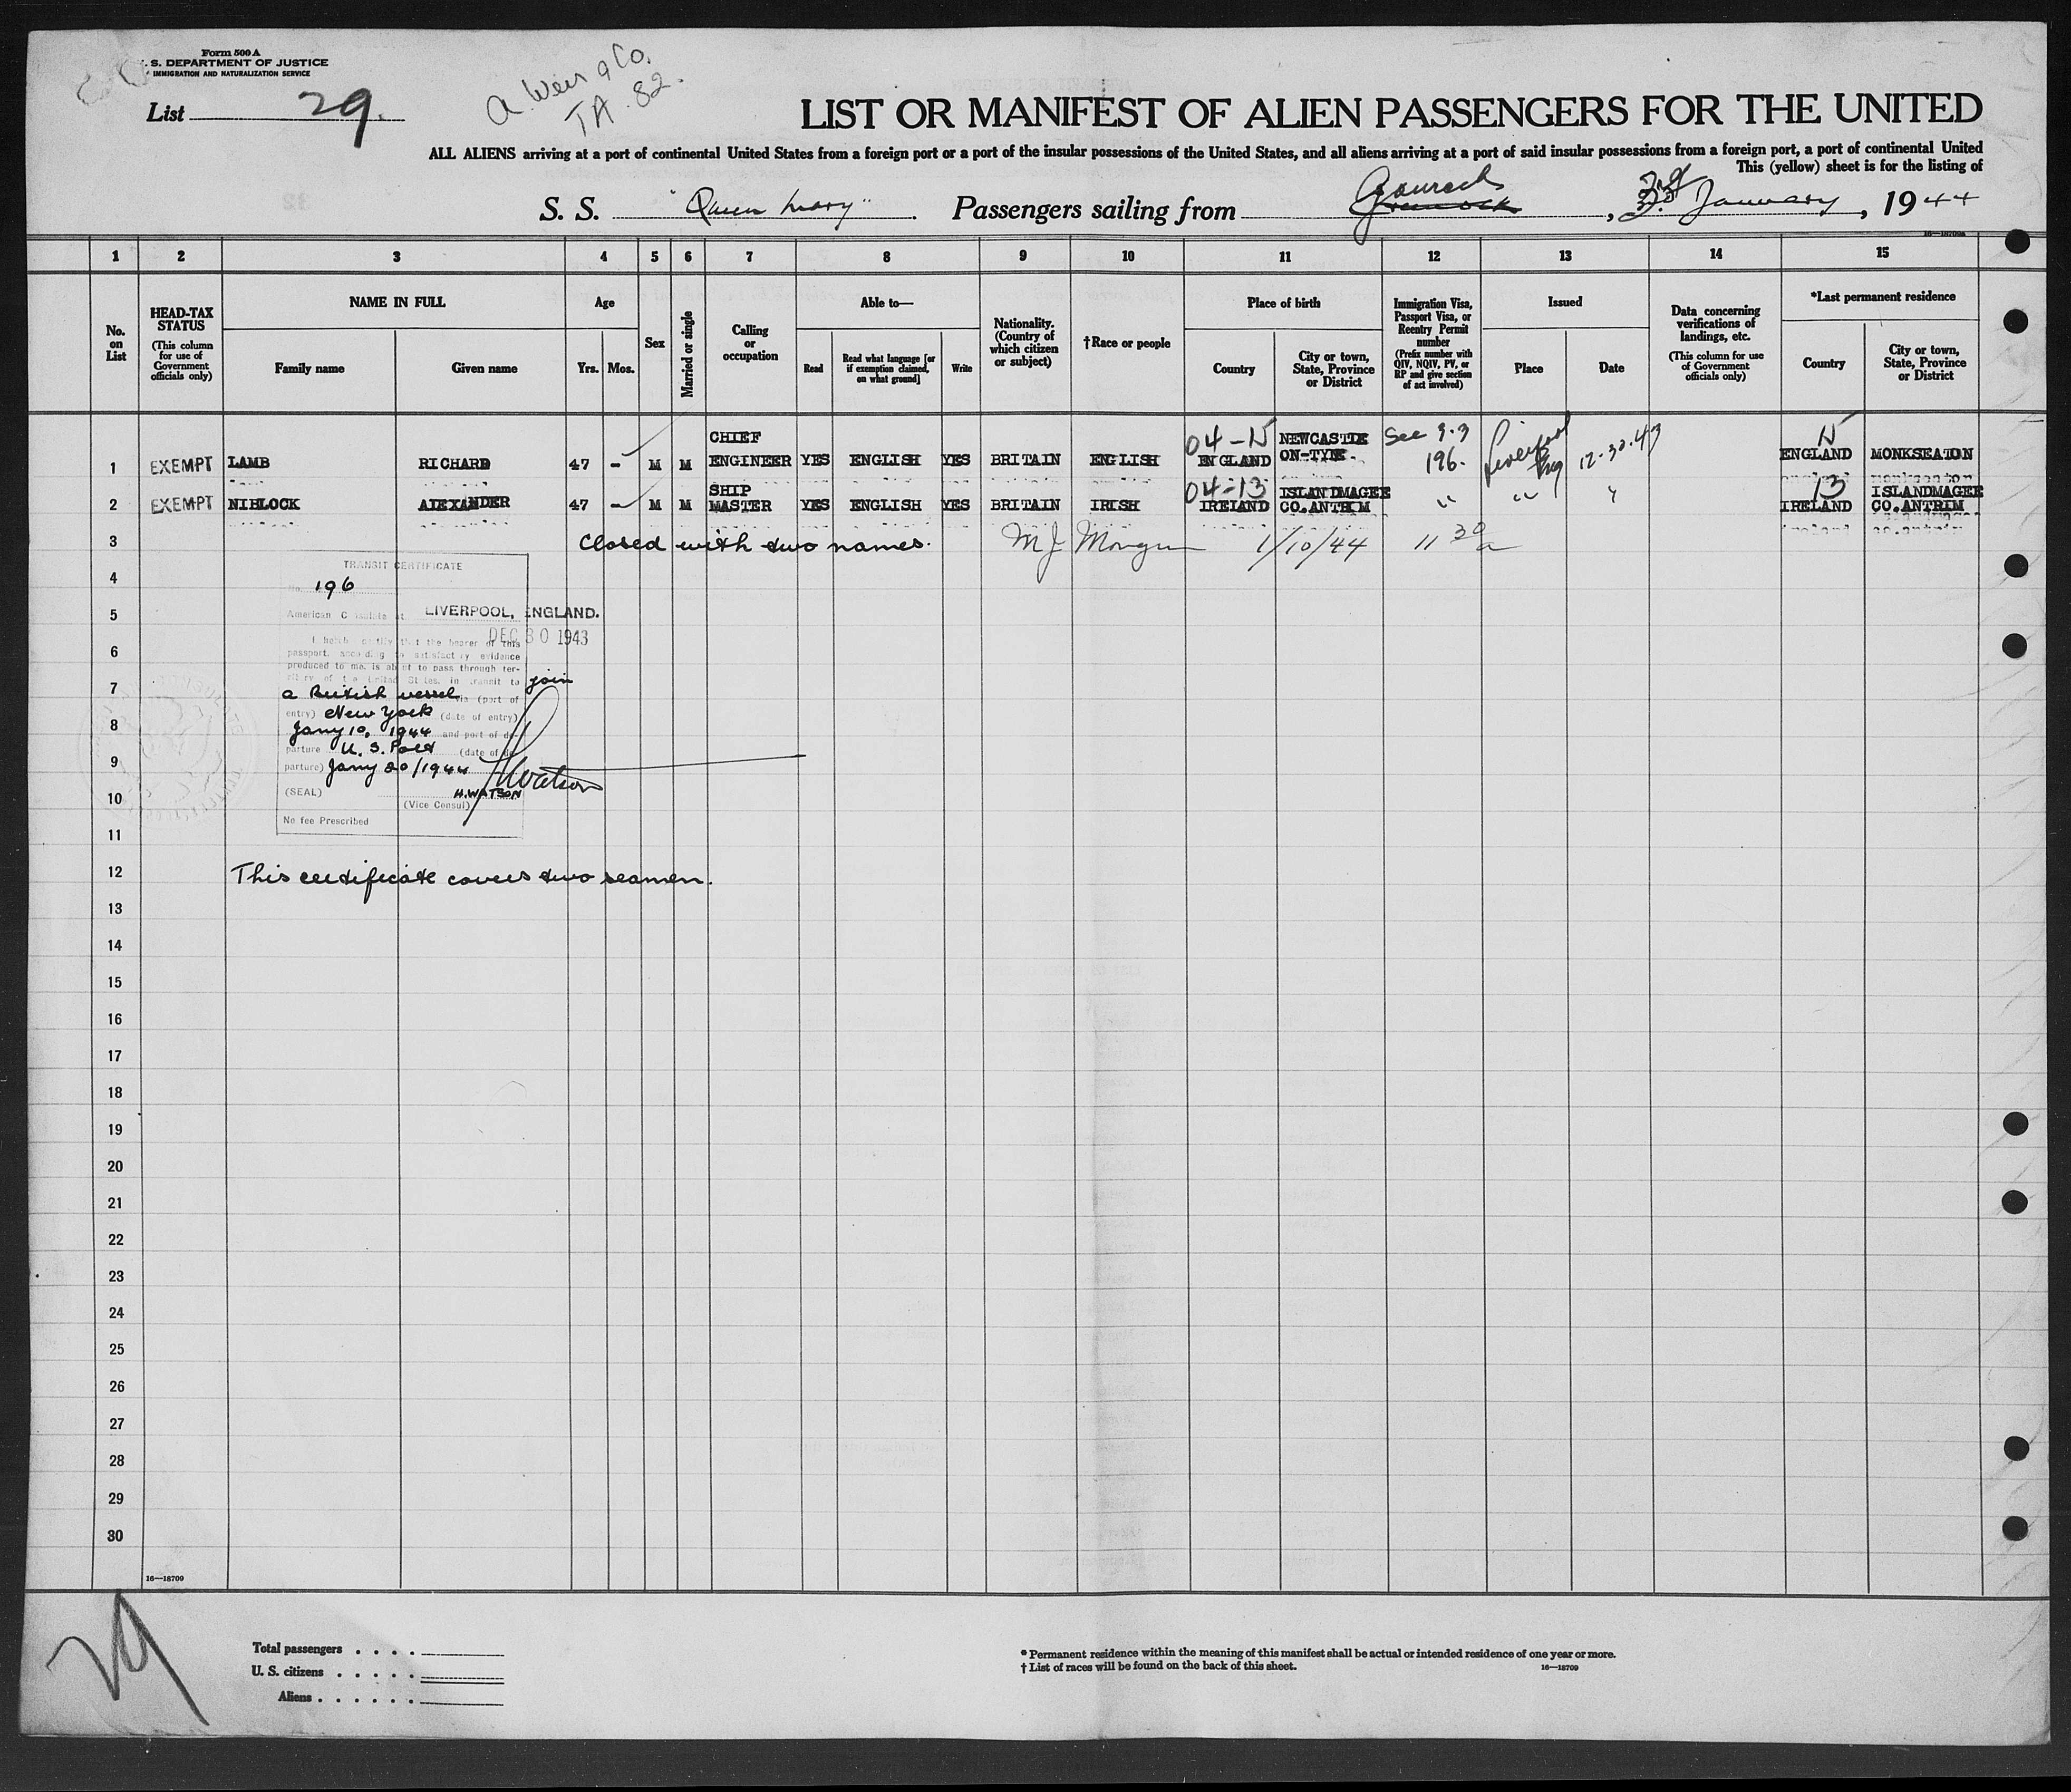 Form 500 A
U. S. DEPARTMENT OF JUSTICE
IMMIGRATION AND NATURALIZATION SERVICE
List 29.
A. Weir & Co.
TA. 82.
LIST OR MANIFEST OF ALIEN PASSENGERS FOR THE UNITED
ALL ALIENS arriving at a port of continental United States from a foreign port or a port of the insular possessions of the United States, and all aliens arriving at a port of said insular possessions from a foreign port, a port of continental United
This (yellow) sheet is for the listing of
S. S. "Queen Mary". Passengers sailing from Gourock Greenock, 3rd January, 1944
1 2 3 4 5 6 7 8 9 10 11 12 13 14 15
No. on List
HEAD-TAX STATUS (This column for use of Government officials only)
NAME IN FULL
Family name Given name
Age
Yrs. Mos.
Sex
Married or single
Calling or occupation
Able to—
Read Read what language [or if exemption claimed, on what ground] Write
Nationality. (Country of which citizen or subject)
†Race or people
Place of birth
Country City or town, State, Province or District
Immigration Visa, Passport Visa, or Reentry Permit number (Prefix number with QIV, NQIV, PV, or RP and give section of act involved)
Issued
Place Date
Data concerning verifications of landings, etc. (This column for use of Government officials only)
*Last permanent residence
Country City or town, State, Province or District
1 EXEMPT LAMB RICHARD 47 - M M CHIEF ENGINEER YES ENGLISH YES BRITAIN ENGLISH 04-15 ENGLAND NEWCASTLE ON-TYNE. See 3.3 196. Liverpool Eng 12-30-43 15 ENGLAND MONKSEATON
2 EXEMPT NIBLOCK ALEXANDER 47 - M M SHIP MASTER YES ENGLISH YES BRITAIN IRISH 04-13 IRELAND ISLANDMAGEE CO.ANTRIM " " " 13 IRELAND ISLANDMAGEE CO.ANTRIM
3 Closed with two names. 1/10/44 11 30 a
4
5
6
7
8
9
10
11
12
13
14
15
16
17
18
19
20
21
22
23
24
25
26
27
28
29
30
TRANSIT CERTIFICATE
No. 196
American Consulate at LIVERPOOL, ENGLAND.
DEC 30 1943
I hereby certify that the bearer of this
passport, according to satisfactory evidence
produced to me, is about to pass through ter-
ritory of the United States, in transit to join
a British vessel via (port of
entry) New York (date of entry)
Jany 10, 1944 and port of de-
parture U. S. Port (date of de-
parture) Jany 20/1944
H Watson
(SEAL) H. WATSON
(Vice Consul)
No fee Prescribed
This certificate covers two seamen.
16—18709
29
Total passengers
U. S. citizens
Aliens
* Permanent residence within the meaning of this manifest shall be actual or intended residence of one year or more.
† List of races will be found on the back of this sheet. 16—18709